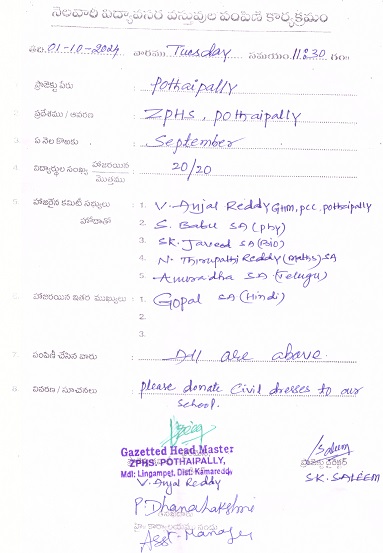 నెలవారీ విద్యావసర వస్తువుల పంపిణీ కార్యక్రమం
తేది. 01-10-2024 వారము Tuesday సమయం. 11:30 గం॥
1. ప్రాజెక్టు పేరు : Pothaipally
2. ప్రదేశము / ఆవరణ : ZPHS, Pothaipally
3. ఏ నెల కొఱకు : September
4. విద్యార్థుల సంఖ్య హాజరయిన / మొత్తము : 20/20
5. హాజరైన కమిటీ సభ్యులు : 1. V. Anjal Reddy GHM, PCC, Pothaipally
హోదాతో 2. S. Babu SA (Phy)
3. SK. Javeed SA (BIO)
4. N. Thirupathi Reddy (Maths) SA
5. Anuradha SA (Telugu)
6. హాజరయిన ఇతర ముఖ్యులు : 1. Gopal SA (Hindi)
2.
3.
7. పంపిణీ చేసిన వారు : All are above.
8. వివరణ / సూచనలు : please donate Civil dresses to our
school.
Gazetted Head Master
ZPHS. POTHAIPALLY,
Mdl: Lingampet, Dist: Kamareddy
V. Anjal Reddy
Saleem
ప్రాజెక్టు డైరెక్టర్
SK. SALEEM
P. Dhanalakshmi
Asst. Manager